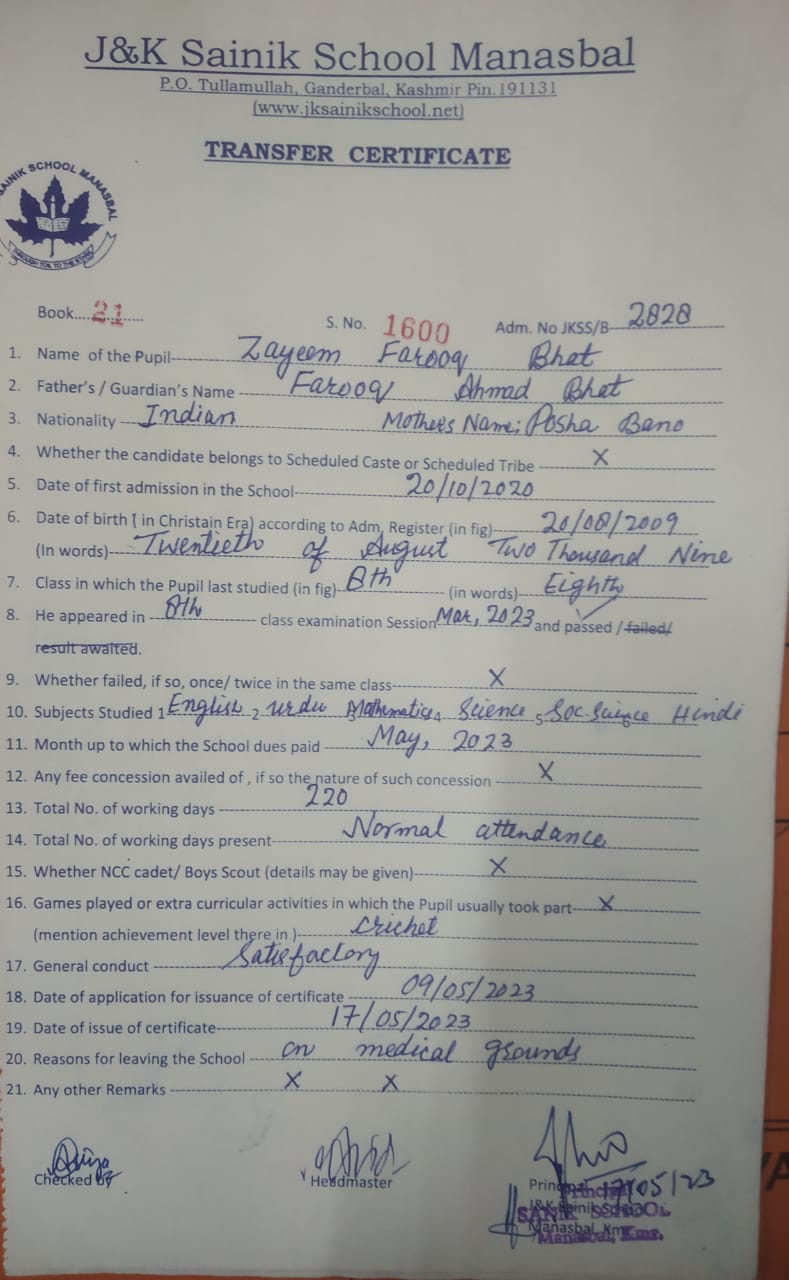 J&K Sainik School Manasbal
P.O. Tullamullah, Ganderbal, Kashmir Pin.191131
(www.jksainikschool.net)
TRANSFER CERTIFICATE
SAINIK SCHOOL MANASBAL
THROUGH TOIL TO THE STARS
Book....21...... S. No. 1600 Adm. No JKSS/B-2828
1. Name of the Pupil- Zayeem Farooq Bhat
2. Father's / Guardian's Name - Farooq Ahmad Bhat
3. Nationality - Indian Mothers Name: Posha Bano
4. Whether the candidate belongs to Scheduled Caste or Scheduled Tribe - X
5. Date of first admission in the School- 20/10/2020
6. Date of birth ( in Christain Era) according to Adm, Register (in fig)- 20/08/2009
(In words)- Twentieth of August Two Thousand Nine
7. Class in which the Pupil last studied (in fig)- 8th (in words)- Eighth
8. He appeared in - 8th class examination Session Mar, 2023 and passed / failed/
result awaited.
9. Whether failed, if so, once/ twice in the same class- X
10. Subjects Studied 1 English 2 Urdu Mathematics 4 Science 5 Soc. Science Hindi
11. Month up to which the School dues paid - May, 2023
12. Any fee concession availed of , if so the nature of such concession - X
13. Total No. of working days - 220
14. Total No. of working days present- Normal attendance
15. Whether NCC cadet/ Boys Scout (details may be given)- X
16. Games played or extra curricular activities in which the Pupil usually took part- X
(mention achievement level there in )- Cricket
17. General conduct - Satisfactory
18. Date of application for issuance of certificate - 09/05/2023
19. Date of issue of certificate- 17/05/2023
20. Reasons for leaving the School - on medical grounds
21. Any other Remarks - X X
Checked by Headmaster Principal 17/05/23
Principal
J&K Sainik School
SANIK SCHOOL
Manasbal, Kmr
Manasbal, Kmr.